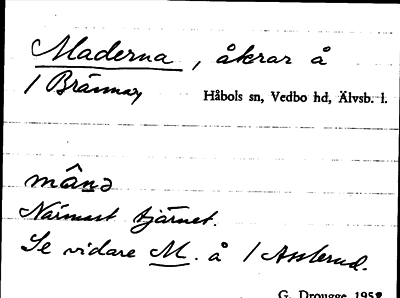 Maderna, åkrar å
1 Brännan
Håbols sn, Vedbo hd, Älvsb. l.
mânə
Närmast tjärnet.
Se vidare M. å 1 Asslerud.
G. Drougge 1952